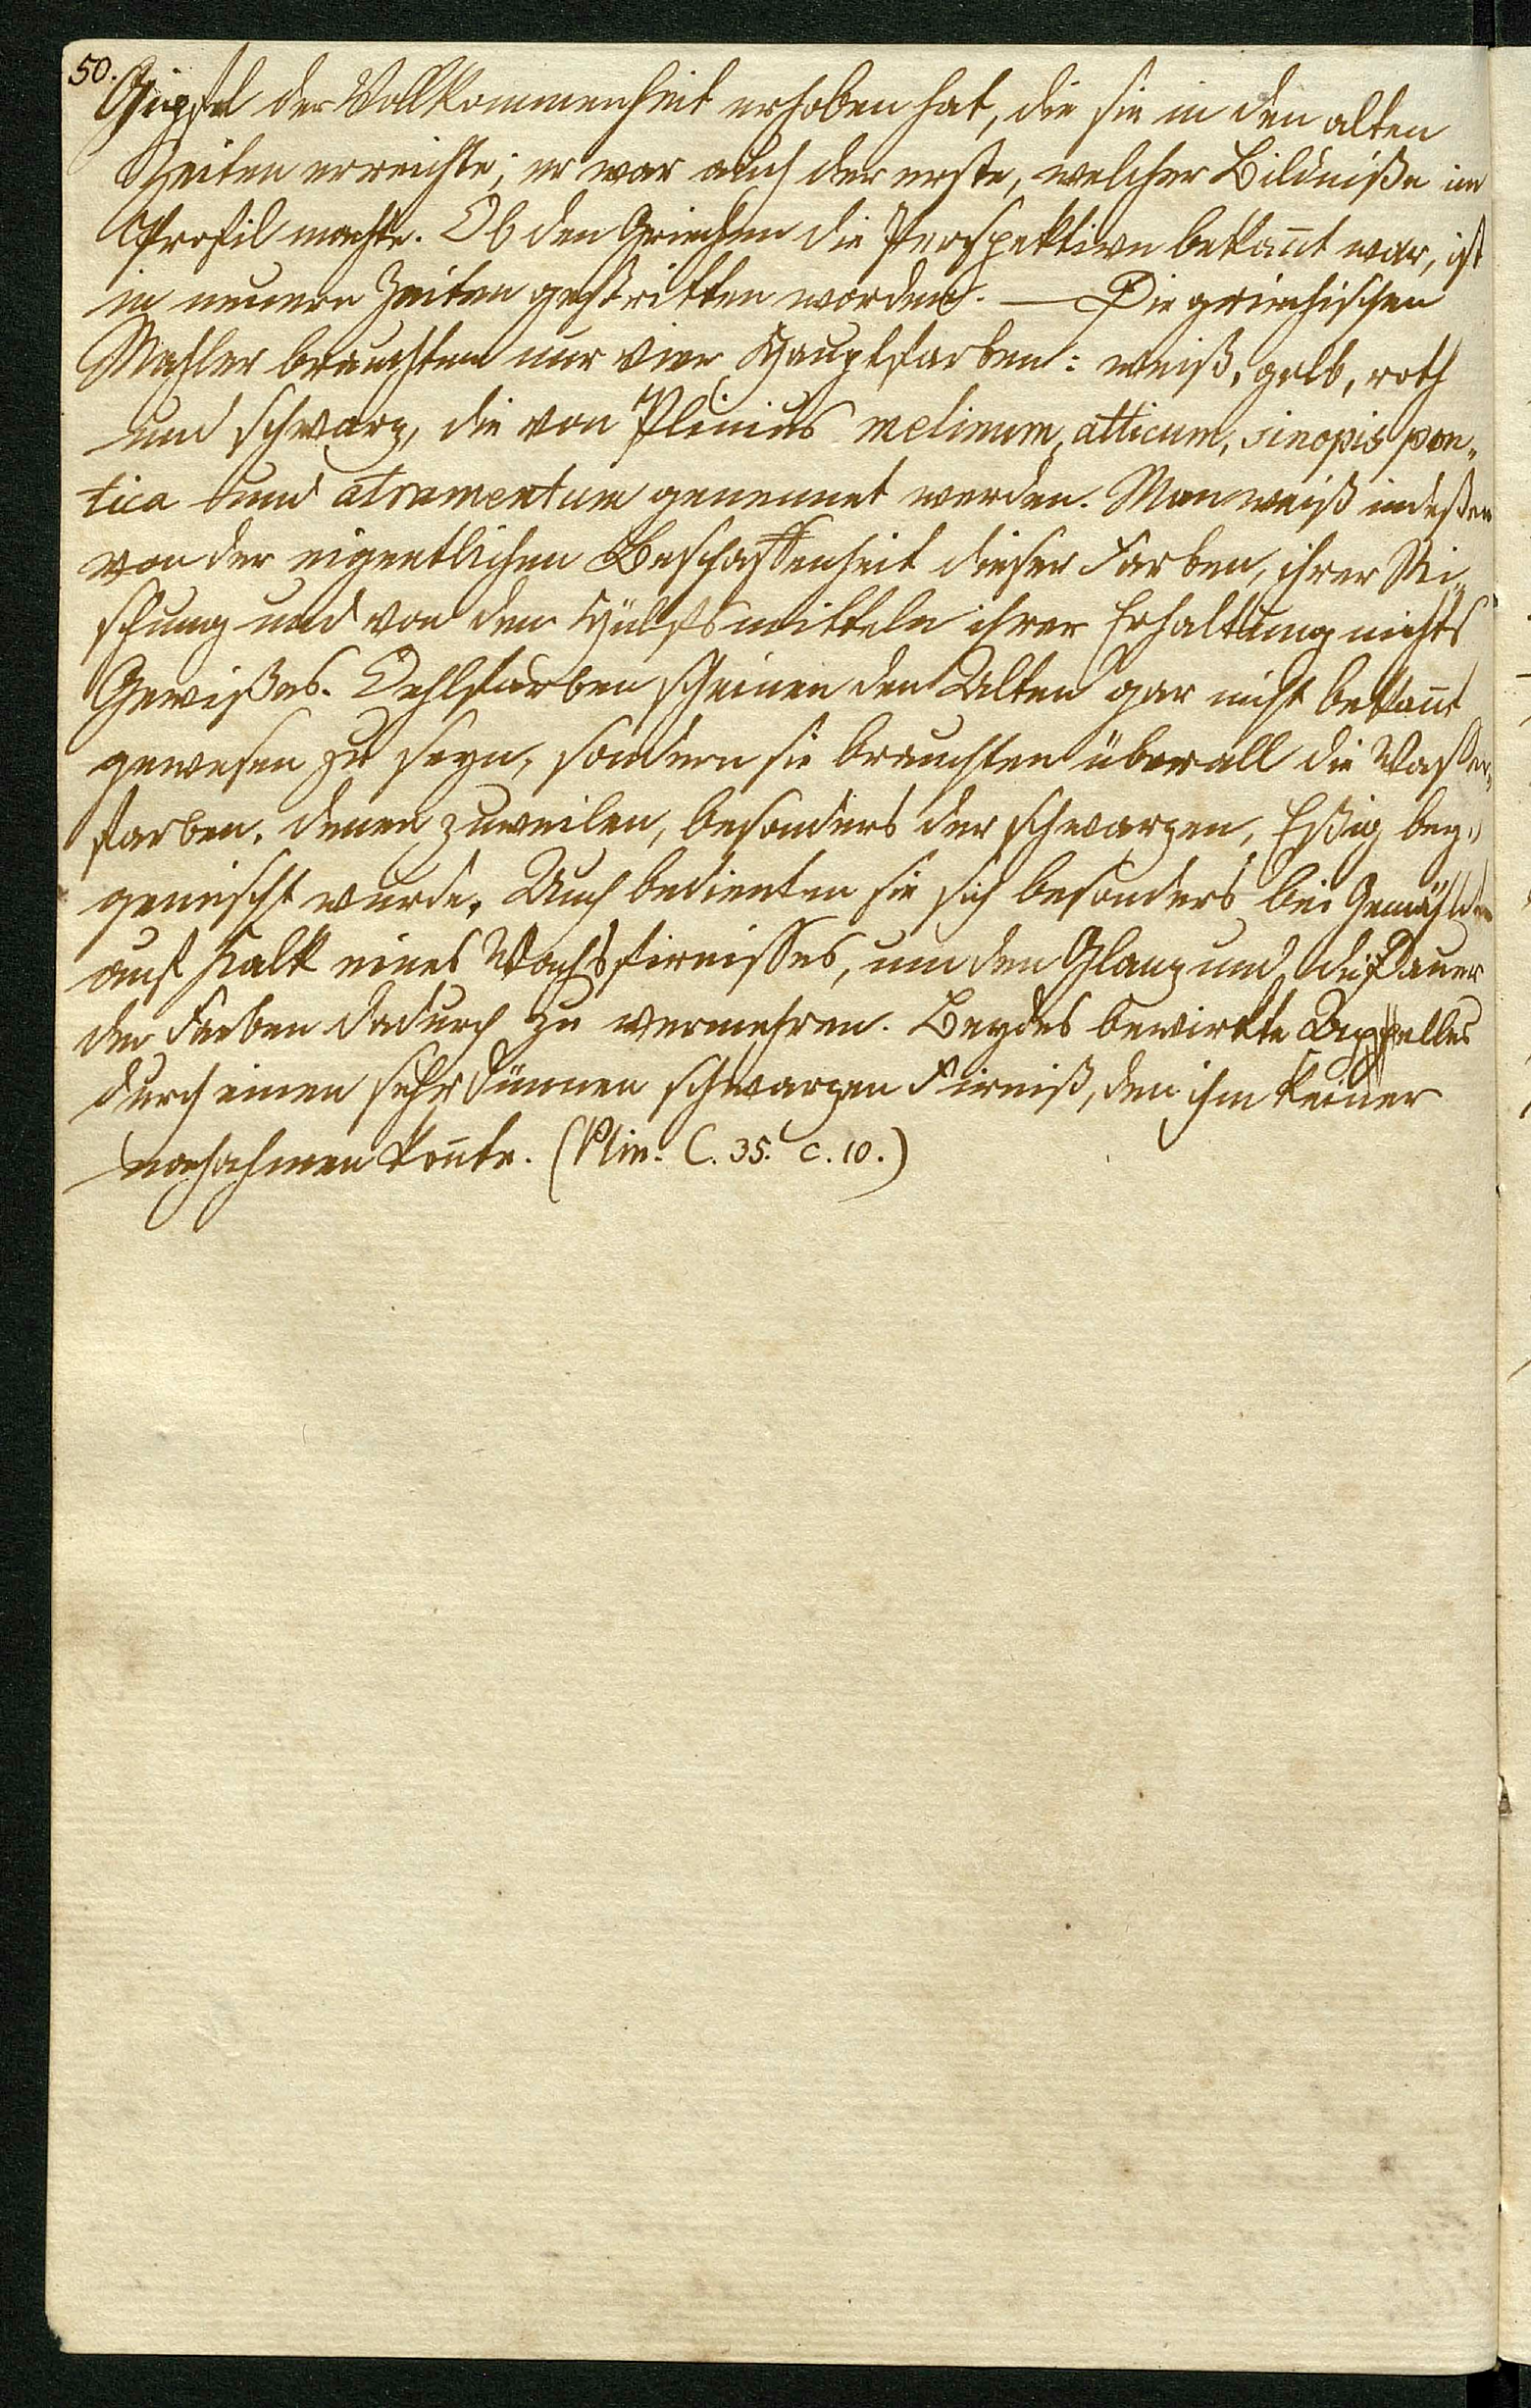 50.
Gipfel der Vollkommenheit erhoben hat, die sie in den alten
Zeiten erreichte; er war auch der erste, welcher Bildniße im
Profil machte. Ob den Griechen die Perspektive bekan̄t war, ist
in neuern Zeiten gestritten worden. — Die griechischen
Mahler brauchten nur vier Hauptfarben: weiß, gelb, roth
und schwarz, die von Plinius melinum, atticum, sinopis pon„
tica und atramentum genennet werden. Man weiß indeßen
von der eigentlichen Beschaffenheit dieser Farben, ihrer Mi„
schung und von den Hülfsmitteln ihrer Erhaltung nichts
Gewißes. Oehlfarben scheinen den Alten gar nicht bekan̄t
gewesen zu seyn, sondern sie brauchten überall die Waßer„
farben, denen zuweilen, besonders der schwarzen, Eßig bey„
gemischt wurde. Auch bedienten sie sich besonders bei Gemählden
auf Kalk eines Wachsfirnisses, um den Glanz und die Dauer
der Farben dadurch zu vermehren. Beydes bewirkte Appelles
durch einen sehr dünnen schwarzen Firniß, den ihm keiner
nachahmen kon̄te. (Plin. l. 35. c. 10.)